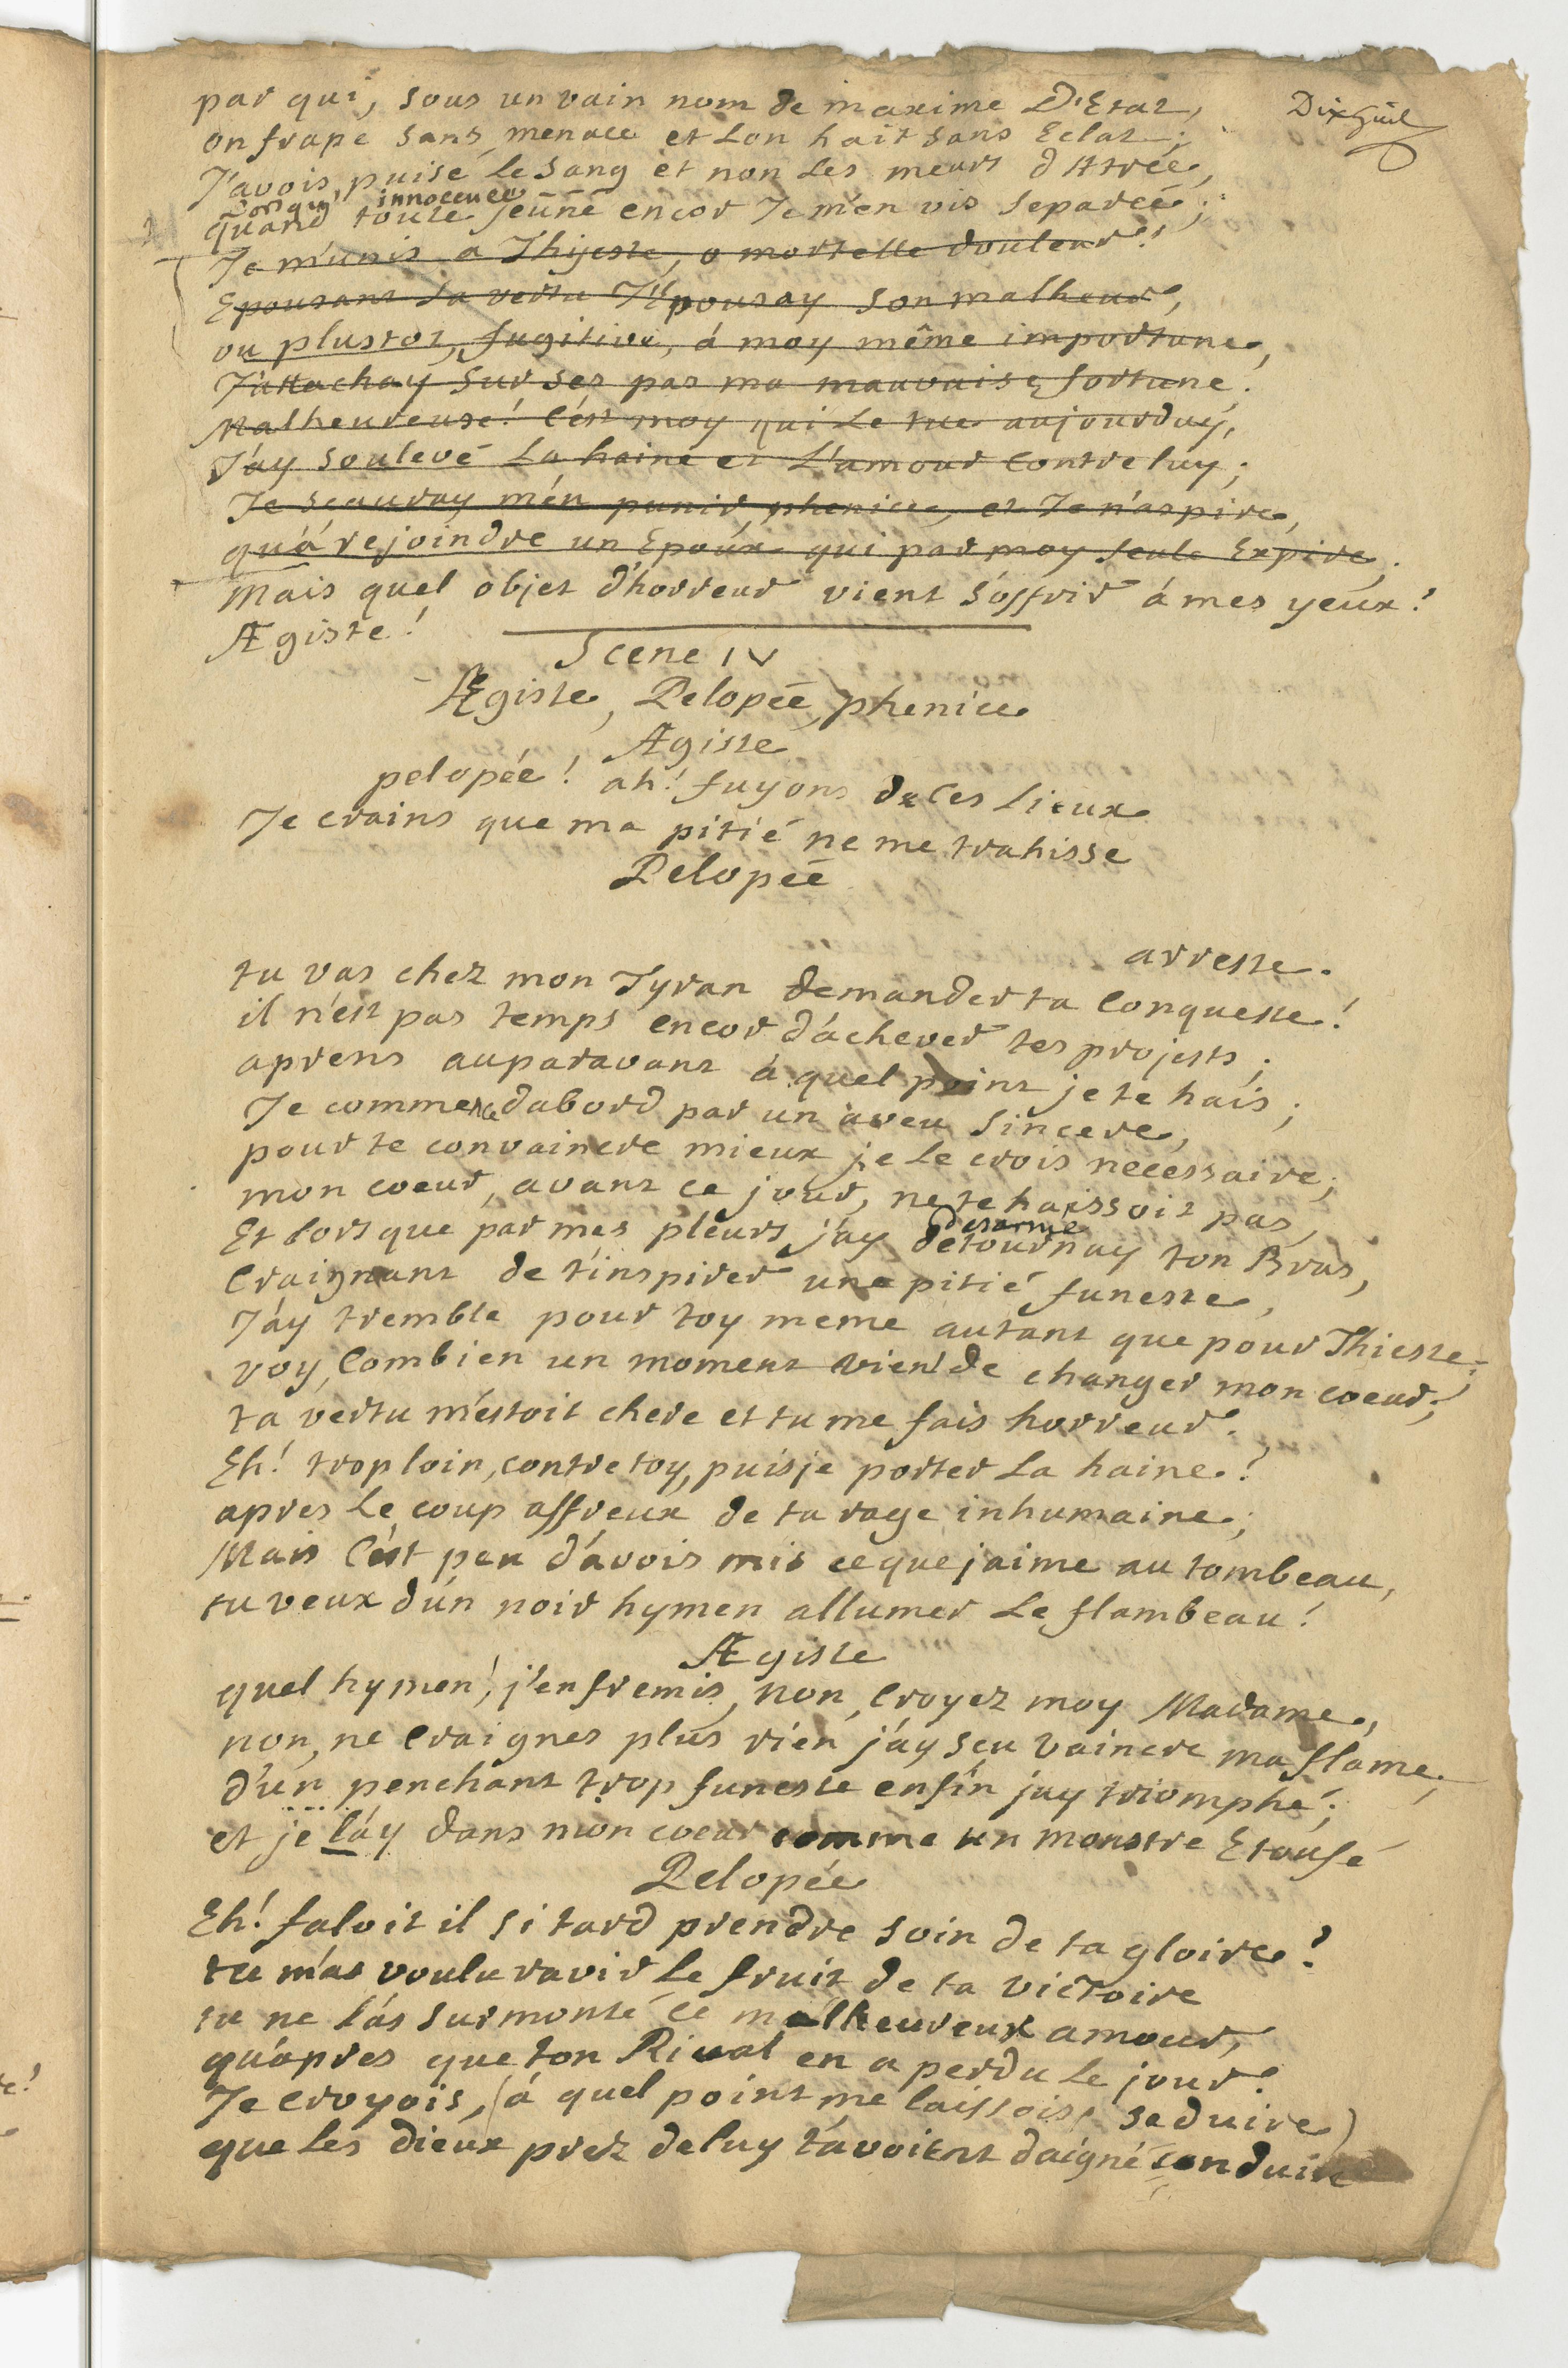 par qui, sous un vain nom de maxime D'Etat,
Dixhuit
on frape sans menace et Lon hait sans Eclat;
J'avois puisé le sang et non les meurs d'Atrée,
Lorsqu' innocence
quand toute jeune encor Je m'en vis separée;
Je m'unis a Thyeste, o mortelle douleur!
Epousant sa vertu J'Epousay son malheur,
ou plustot, fugitive, á moy même importune,
J'attachay sur ses pas ma mauvaise fortune.
Malheureuse! C'est moy qui le tue aujourduy,
J'ay soulevé La haine et L'amour Contre luy;
Je scauray m'en punir, phenice, et Je n'aspire,
qu'á rejoindre un Epoux qui par moy seule Expire.
Mais quel objet d'horreur vient s'offrir á mes yeux!
Ægiste!
Scene IV
Ægiste, Pelopée, phenice
Ægiste
pelopée! ah! fuyons de Ces Lieux
Je crains que ma pitié ne me trahisse
Pelopée
arreste.
tu vas chez mon Tyran demander ta Conqueste!
il n'est pas temps encor d'achever tes projets;
aprens auparavant á quel point je te hais;
Je commence dabord par un aveu sincere,
pour te convaincre mieux je Le crois necessaire;
mon coeur, avant ce jour, ne te haissoit pas,
desarmé
Et lors que par mes pleurs j'ay detournay ton Bras,
Craignant de t'inspirer une pitié funeste,
J'ay tremble pour toy meme autant que pour Thieste;
voy, Combien un moment vient de changer mon coeur;
ta vertu m'estoit chere et tu me fais horreur.
Eh! trop loin, contre toy, puisje porter La haine?
apres Le coup affreux de ta rage inhumaine;
Mais C'est peu d'avois mis ce que jaime au tombeau,
tu veux d'un noir hymen allumer Le flambeau!
Ægiste
quel hymen! j'en fremis, non, Croyez moy Madame,
non, ne Craignes plus rien j'ay sçu vaincre ma flame;
d'un penchant trop funeste enfin jay triomphé;
et je l'ay dans mon coeur comme un monstre Etoufé
Pelopée
Eh! faloit il si tard prendre soin de ta gloire?
tu m'as voulu ravir Le fruit de ta victoire
tu ne l'as surmonté ce malheureux amour,
qu'apres que ton Rival en a perdu Le jour.
Je croyois, (á quel point me laissois seduire)
que Les dieux prez de luy t'avoient daigné conduire